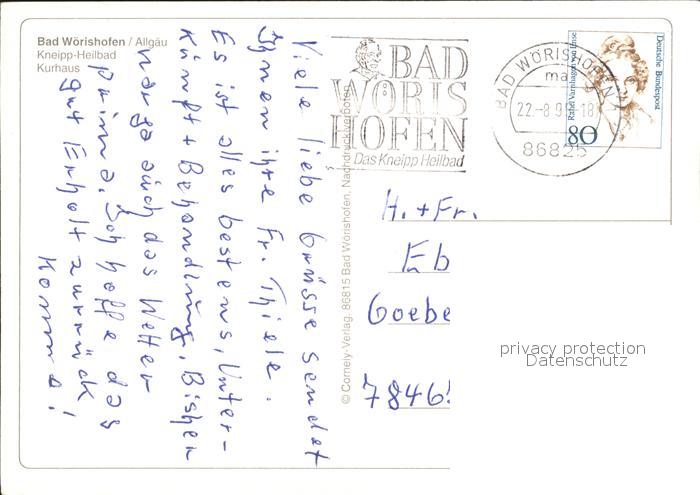 Bad Wörishofen / Allgäu
Kneipp-Heilbad
Kurhaus
Viele liebe Grüsse sendet
Ihnen ihre Fr. Thiele.
Es ist alles bestens, Unter-
künft + Behandlung. Bisher
war ja auch das Wetter
prima. Ich hoffe das
gut Erholt zurrück
komme!
© Cornely-Verlag, 86815 Bad Wörishofen, Nachdruck verboten
BAD
WÖRIS
HOFEN
Das Kneipp Heilbad
BAD WÖRISHOFEN
ma
22.-8.9 -18
86825
Rahel Varnhagen von Ense
80
Deutsche Bundespost
H. + Fr.
Eb
Goebe
7846
privacy protection
Datenschutz